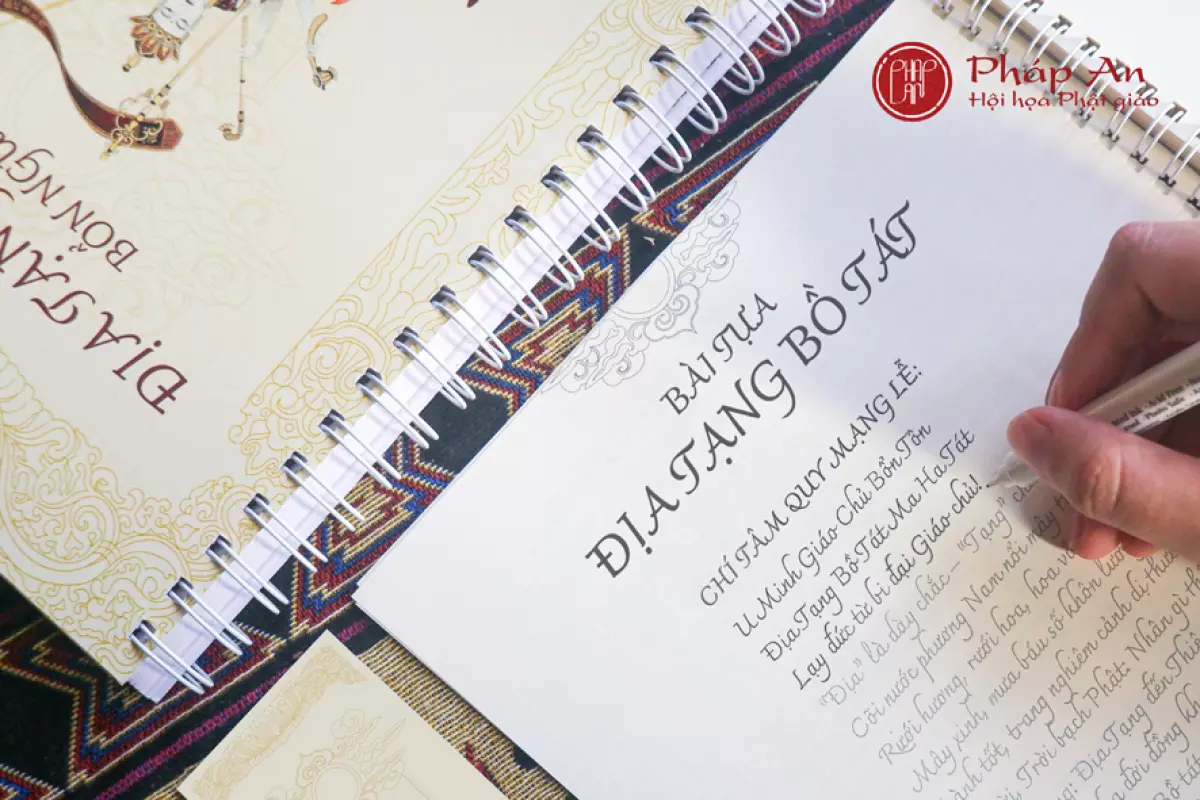 PHAP
AN
Pháp An
Hội họa Phật giáo
ĐỊA TẠN
BỔN NGU
BÀI TỰA
ĐỊA TẠNG BỒ TÁT
CHÍ TÂM QUY MẠNG LỄ:
U Minh Giáo Chủ Bổn Tôn
Địa Tạng Bồ Tát Ma Ha Tát
Lạy đức từ bi đại Giáo chủ!
"Địa" là dày chắc – "Tạng" ch
Cõi nước phương Nam nổi mây
Rưới hương, rưới hoa, hoa v
Mây xinh, mưa báu số khôn lườ
ành tốt, trang nghiêm cảnh dị thư
Trời bạch Phật: Nhân gì th
Địa Tạng đến Thiê
đời đồng kh
Bồ tát